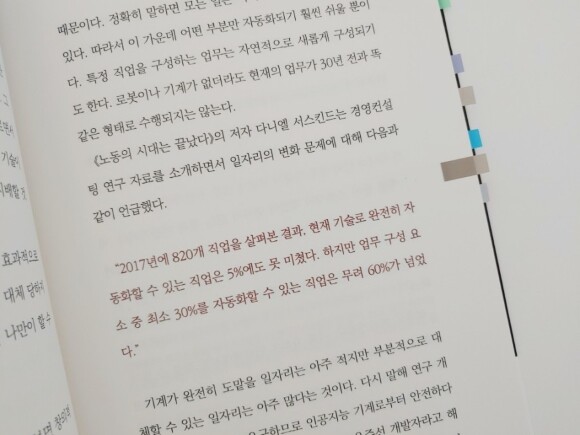 때문이다. 정확히 말하면 모든 일은
있다. 따라서 이 가운데 어떤 부분만 자동화되기 훨씬 쉬울 뿐이
다. 특정 직업을 구성하는 업무는 자연적으로 새롭게 구성되기
도 한다. 로봇이나 기계가 없더라도 현재의 업무가 30년 전과 똑
같은 형태로 수행되지는 않는다.
《노동의 시대는 끝났다》의 저자 다니엘 서스킨드는 경영컨설
팅 연구 자료를 소개하면서 일자리의 변화 문제에 대해 다음과
같이 언급했다.
"2017년에 820개 직업을 살펴본 결과, 현재 기술로 완전히 자
동화할 수 있는 직업은 5%에도 못 미쳤다. 하지만 업무 구성 요
소 중 최소 30%를 자동화할 수 있는 직업은 무려 60%가 넘었
다."
기계가 완전히 도맡을 일자리는 아주 적지만 부분적으로 대
체할 수 있는 일자리는 아주 많다는 것이다. 다시 말해 연구 개
인공지능 기계로부터 안전하다
개발자라고 해
효과적으로
대체 당하지
나만이 할 수